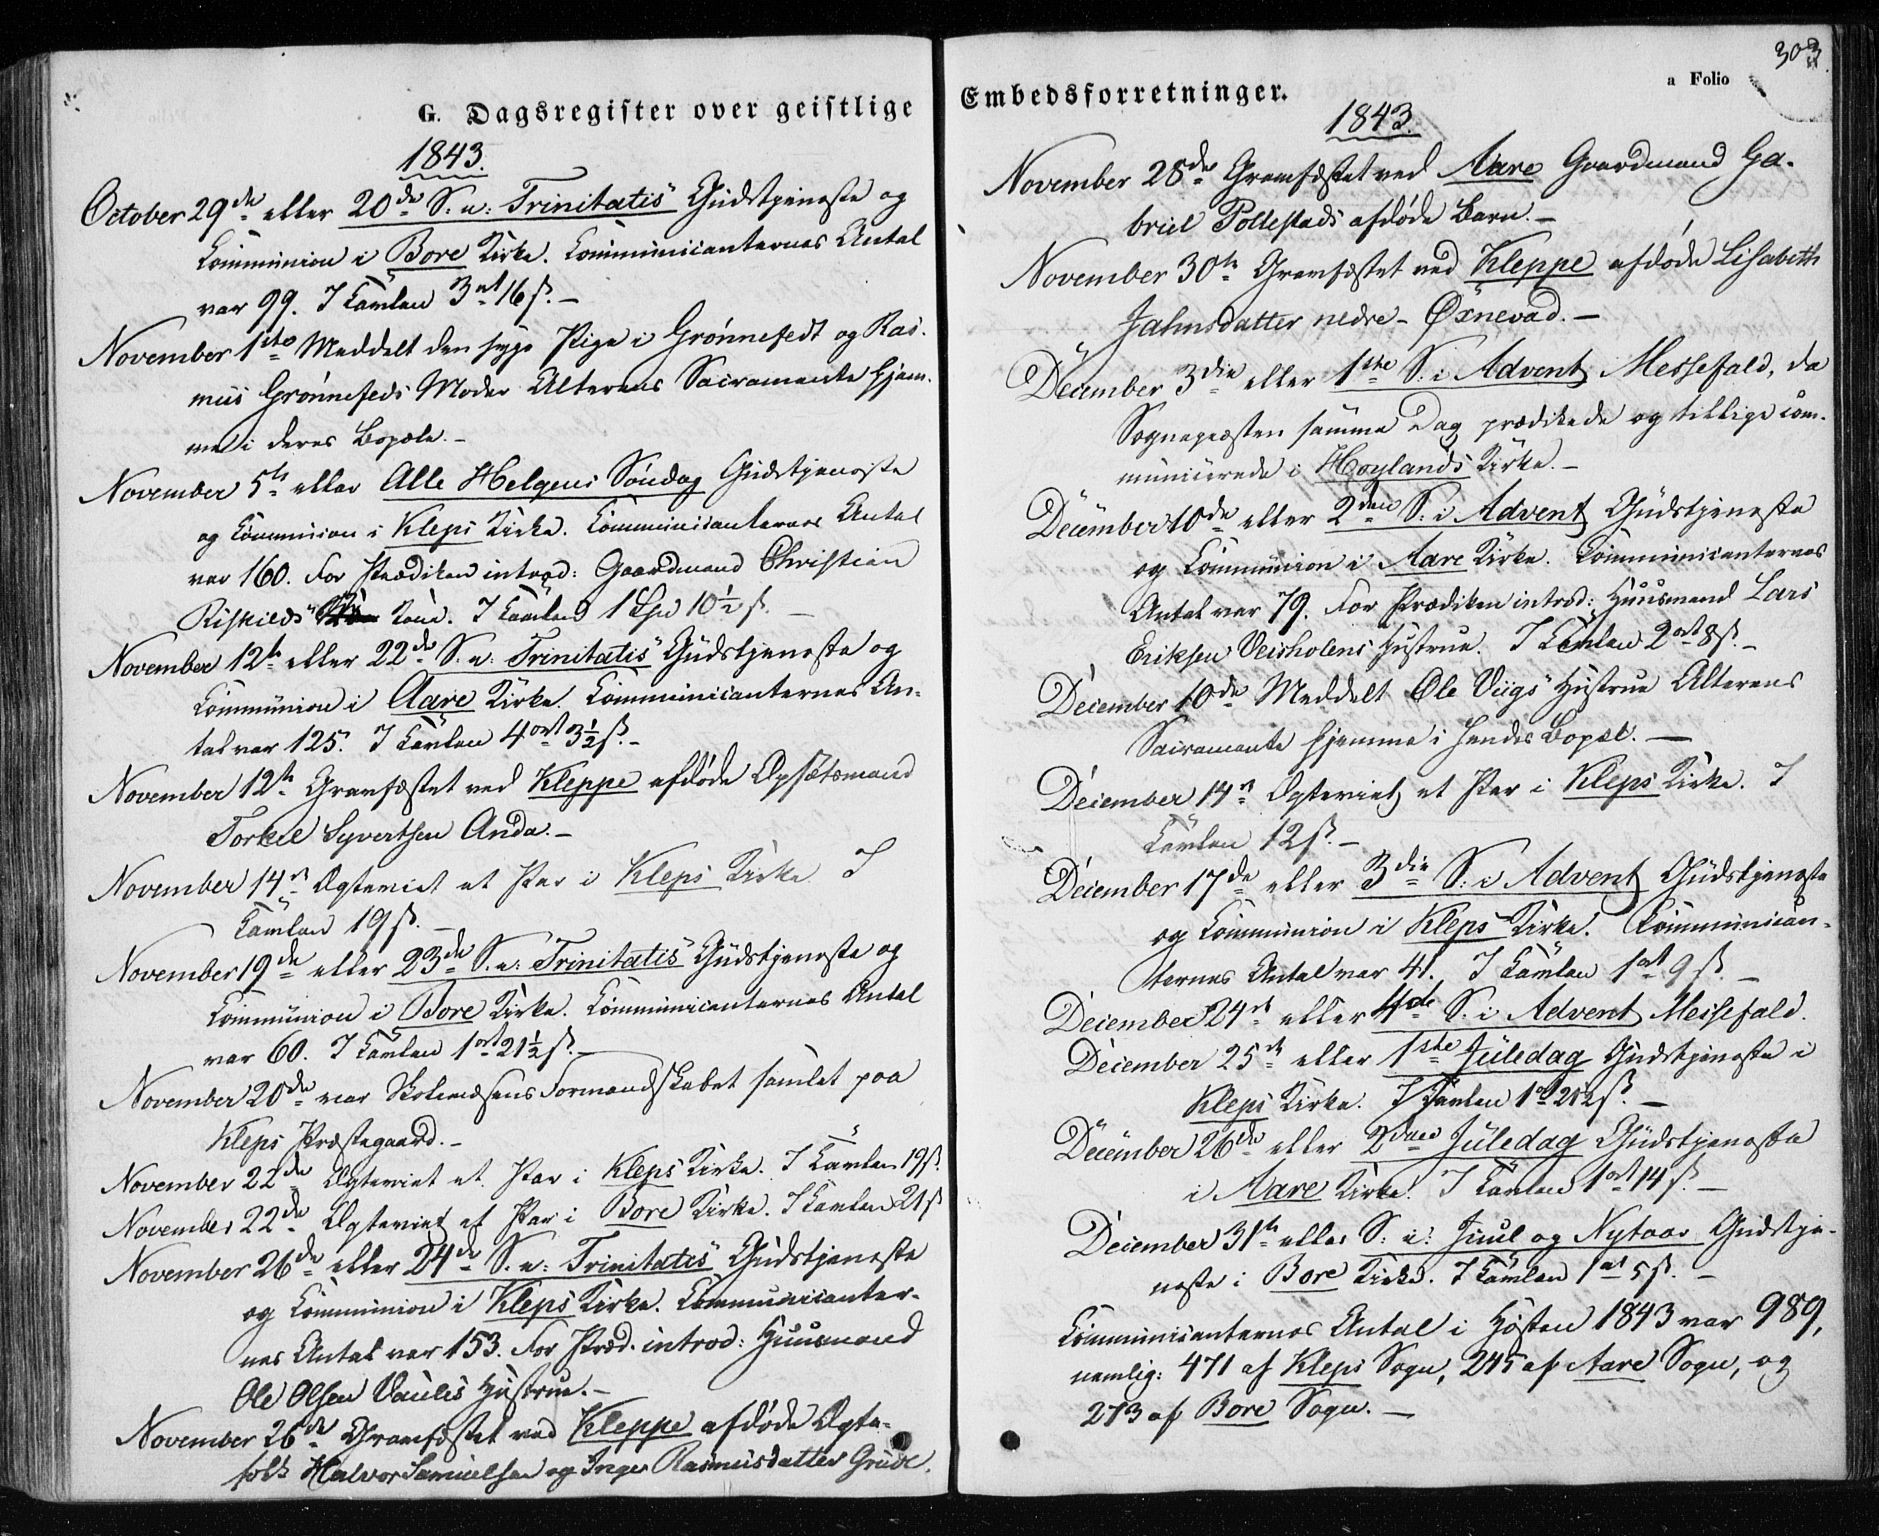 G. Dagsregister over geistlige
1843.
October 29de eller 20de S. e: Trinitatis Gudstjeneste og
Communion i Bore Kirke. Communicanternes Antal
var 99. I Tavlen 3 ort 16 ß. –
November 1ste Meddelt den syge Pige i Grønnefedt og Ras-
mus Grønnefeds Moder Alterens Sacramente hjem-
me i deres Bopæle. –
November 5te eller Alle Helgens Søndag Gudstjeneste
og Communion i Kleps Kirke. Communicanternes Antal
var 160. For Prædiken introd: Gaardmand Christian
Riskjeds Kone. I Tavlen 1 Spd 10½ ß. –
November 12te eller 22de S. e: Trinitatis Gudstjeneste og
Communion i Aare Kirke. Communicanternes An-
tal var 125. I Tavlen 4 ort 3½ ß. –
November 12te Gravfæstet ved Kleppe afdøde Opsætsmand
Torkel Syvertsen Anda. –
November 14de Ægteviet et Par i Kleps Kirke. I
Tavlen 19 ß. –
November 19de eller 23de S. e: Trinitatis Gudstjeneste og
Communion i Bore Kirke. Communicanternes Antal
var 60. I Tavlen 1 ort 21½ ß. –
November 20de var Skolevæsens Formandskabet samlet paa
Kleps Præstegaard. –
November 22de Ægteviet et Par i Kleps Kirke. I Tavlen 19 ß.
November 22de Ægteviet et Par i Bore Kirke. I Tavlen 21 ß
November 26de eller 24de S. e: Trinitatis Gudstjeneste
og Communion i Kleps Kirke. Communicanter-
nes Antal var 153. For Præd. introd: Huusmand
Ole Olsen Vaules Hustrue. –
November 26de Gravfæstet ved Kleppe afdøde Ægte-
folk Halvor Samuelsen og Inger Rasmusdatter Grude.
Embedsforretninger.
a Folio
303
1843.
November 28de Gravfæstet ved Aare Gaardmand Ga-
briel Pollestads afdøde Barn. –
November 30te Gravfæstet ved Kleppe afdøde Lisabeth
Jahnsdatter nedre – Øxnevad. –
December 3die eller 1ste S. i Advent Messefald, da
Sognepræsten samme Dag prædikede og tillige com-
municerede i Høylands Kirke. –
December 10de eller 2den S. i Advent Gudstjeneste
og Communion i Aare Kirke. Communicanternes
Antal var 79. For Prædiken introd: Huusmand Lars
Eriksen Veisholens Hustrue. I Tavlen 2 ort 8 ß. –
December 10de Meddelt Ole Viigs Hustrue Alterens
Sacramente hjemme i hendes Bopæl. –
December 14de Ægteviet et Par i Kleps Kirke. I
Tavlen 12 ß. –
December 17de eller 3die S. i Advent Gudstjeneste
og Communion i Kleps Kirke. Communican-
ternes Antal var 41. I Tavlen 1 ort 9 ß. –
December 24de eller 4de S. i Advent Messefald.
December 25de eller 1ste Juledag Gudstjeneste i
Kleps Kirke. I Tavlen 1 ort ß. –
December 26de eller 2den Juledag Gudstjeneste
i Aare Kirke. I Tavlen 1 ort 14 ß. –
December 31te eller S. e: Juul og Nytaar Gudstje-
neste i Bore Kirke. I Tavlen 1 ort 5 ß. –
Communicanternes Antal i Høsten 1843 var 989,
nemlig: 471 af Kleps Sogn, 245 af Aare Sogn, og
273 af Bore Sogn. –